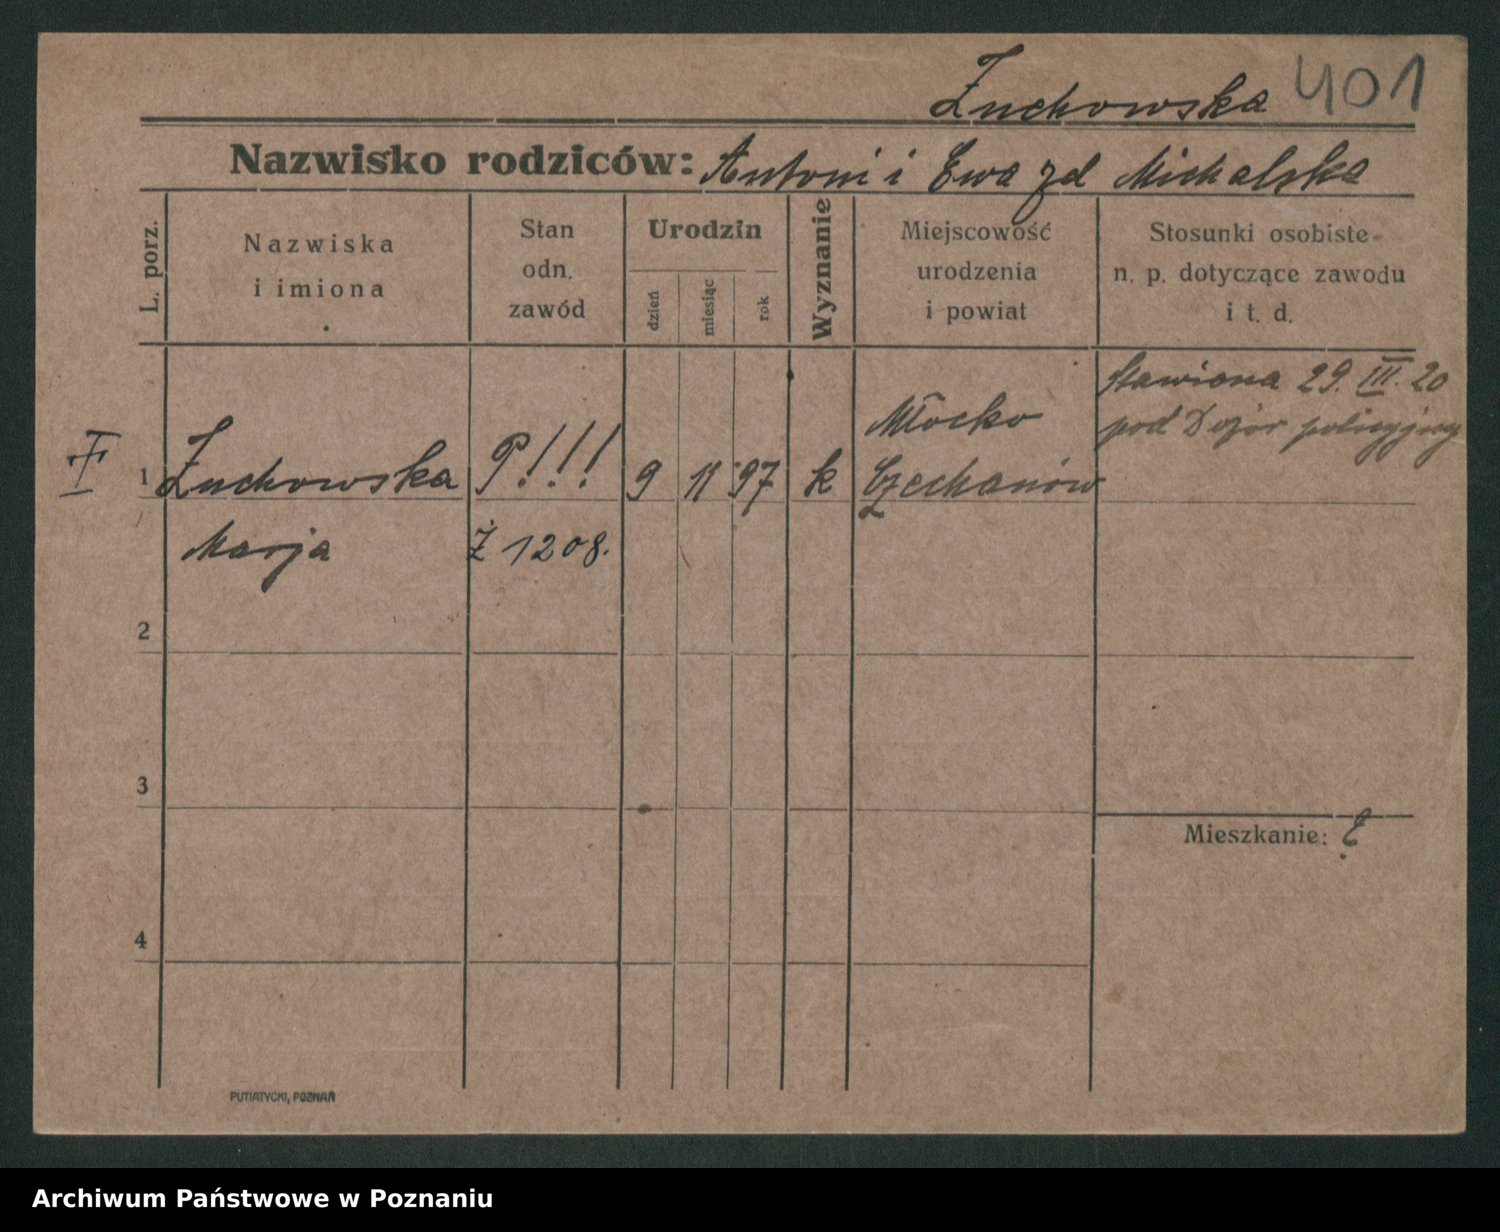 Żuchowska 401
Nazwisko rodziców: Antoni i Ewa zd Michalska
L. porz.
Nazwiska
i imiona
Stan
odn.
zawód
Urodzin
dzień
miesiąc
rok
Wyznanie
Miejscowość
urodzenia
i powiat
Stosunki osobiste
n. p. dotyczące zawodu
i t. d.
Stawiona 29. III. 20
pod Dozór policyjny
1 Żuchowska P!!! 9 11 97 k Młocko
Czechanów
Marja Ż 1208.
2
3
Mieszkanie: ?
4
PUTIATYCKI, POZNAŃ
Archiwum Państwowe w Poznaniu